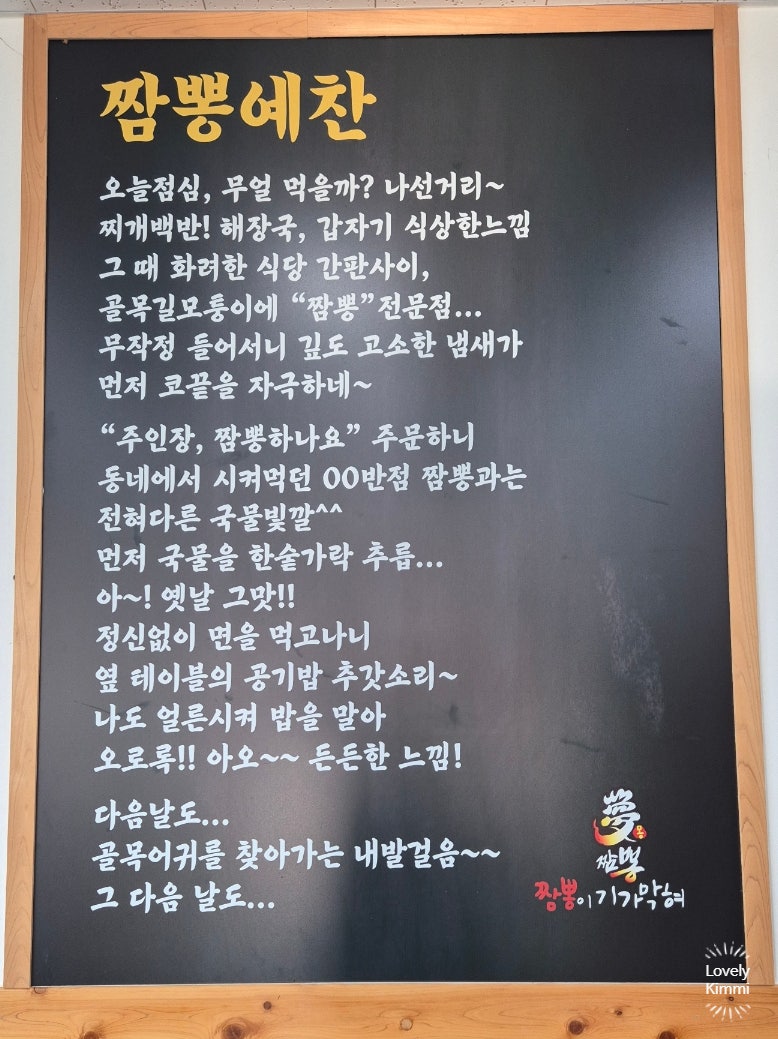 짬뽕예찬
오늘점심, 무얼 먹을까? 나선거리~
찌개백반! 해장국, 갑자기 식상한느낌
그 때 화려한 식당 간판사이,
골목길모퉁이에 “짬뽕”전문점...
무작정 들어서니 깊도 고소한 냄새가
먼저 코끝을 자극하네~
“주인장, 짬뽕하나요” 주문하니
동네에서 시켜먹던 OO반점 짬뽕과는
전혀다른 국물빛깔^^
먼저 국물을 한숟가락 추릅...
아~! 옛날 그맛!!
정신없이 면을 먹고나니
옆 테이블의 공기밥 추갓소리~
나도 얼른시켜 밥을 말아
오로록!! 아오~~ 든든한 느낌!
다음날도...
골목어귀를 찾아가는 내발걸음~~
그 다음 날도...
夢
몽
짬뽕
짬뽕이기가막혀
Lovely
Kimmi